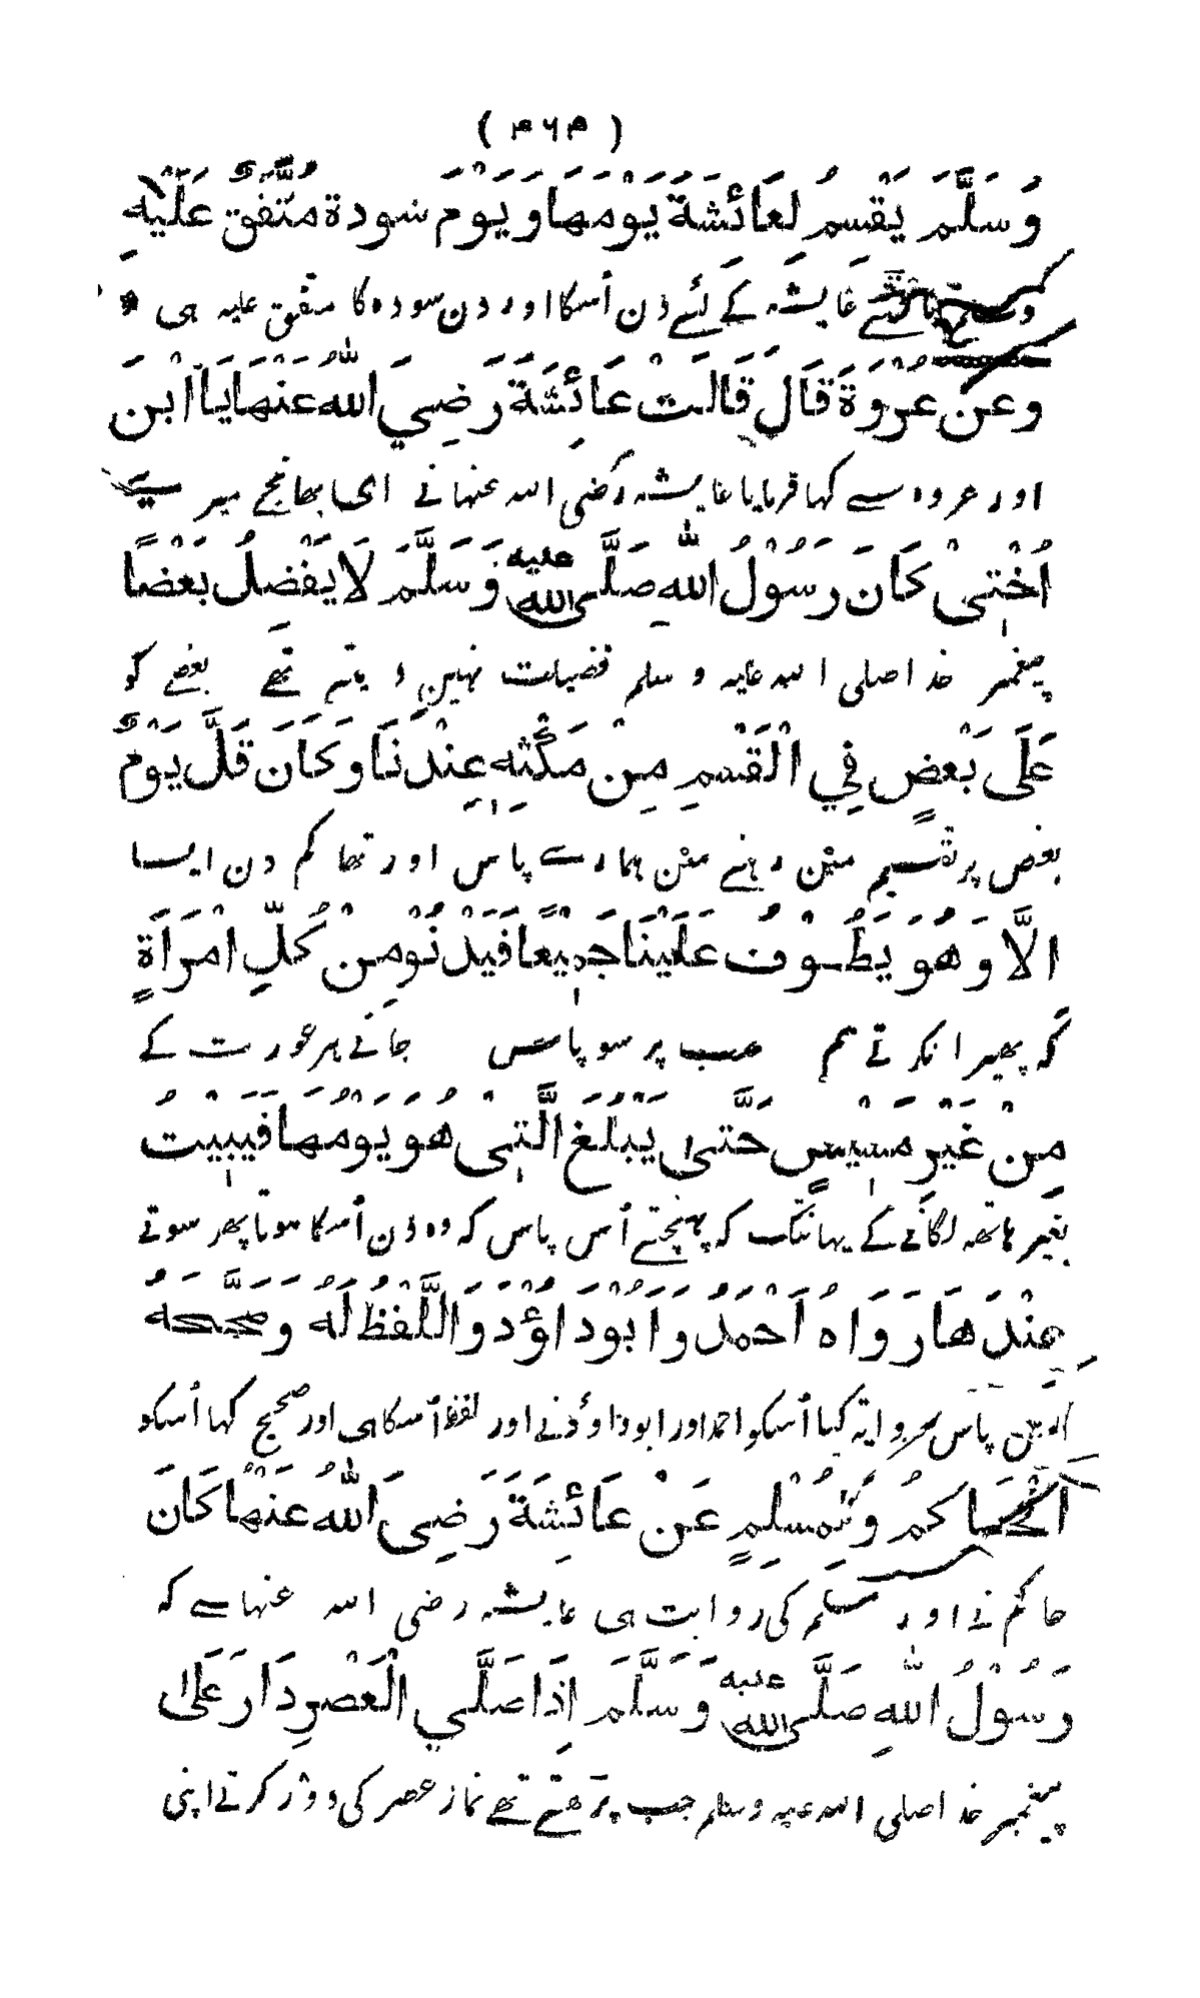 ( ۴۶۴ )
وَسَلَّمَ يَقْسِمُ لِعَائَشَةَ يَوْمَهَا وَيَوْمَ سَوْدَةَ مُتَّفَقٌ عَلَيْهِ
عایشہ کے لئے دن اُسکا اور دن سودہ کا متفق علیہ ہی
وَعَنْ عُرْوَةَ قَالَ قَالَتْ عَائِشَةَ رَضِيَ اللّٰهُ عَنْهَا يَا ابْنَ
اور عروہ سے کہا فرمایا عایشہ رضی اللہ عنہا نے ای بھانجے میرے
اُخْتِىْ كَانَ رَسُوْلُ اللّٰهِ صَلَّى اللّٰه عليه وَسَلَّمَ لَا يَفْضِلُ بَعْضًا
پیغمبر خدا صلی اللہ علیہ و سلم فضیلت نہین دیتے تھے بعضے کو
عَلَى بَعْضٍ فِي الْقَسْمِ مِنْ مَكْثِهِ عِنْدَنَا وَكَانَ قَلَّ يَوْمٌ
بعض پر تقسیم مین رہنے مین ہمارے پاس اور تھا کم دن ایسا
اِلَّا وَهُوَ يَطُوْفُ عَلَيْنَا جَمِيْعًا فَيَدْنُوْ مِنْ كُلِّ امْرَاَةٍ
کہ پھیرا نکرتے ہم سب پر سو پاس جاتے ہر عورت کے
مِنْ غَيْرِ مَسِيْسٍ حَتَّى يَبْلُغَ الَّتِىْ هُوَ يَوْمُهَا فَيَبِيْتُ
بغیر ہاتھہ لگانے کے یہانتک کہ پہنچتے اُس پاس کہ وہ دن اُسکا ہوتا پھر سوتے
عِنْدَهَا رَوَاهُ اَحْمَدُ وَاَبُوْدَاؤُدَ وَاللَّفْظُ لَهُ وَصَحَّحَهُ
پاس روایت کیا اُسکو احمد اور ابوداؤد نے اور لفظ اُسکا ہی اور صحیح کہا اُسکو
الْحَاكِمُ وَلِمُسْلِمٍ عَنْ عَائِشَةَ رَضِيَ اللّٰهُ عَنْهَا كَانَ
حاکم نے اور مسلم کی روایت ہی عایشہ رضی اللہ عنہا سے کہ
رَسُوْلُ اللّٰهِ صَلَّى اللّٰه عليه وَسَلَّمَ اِذَا صَلَّي الْعَصْرِ دَارَ عَلَى
پیغمبر خدا صلی اللہ علیہ وسلم جب پڑھتے تھے نماز عصر کی دور کرتے اپنی